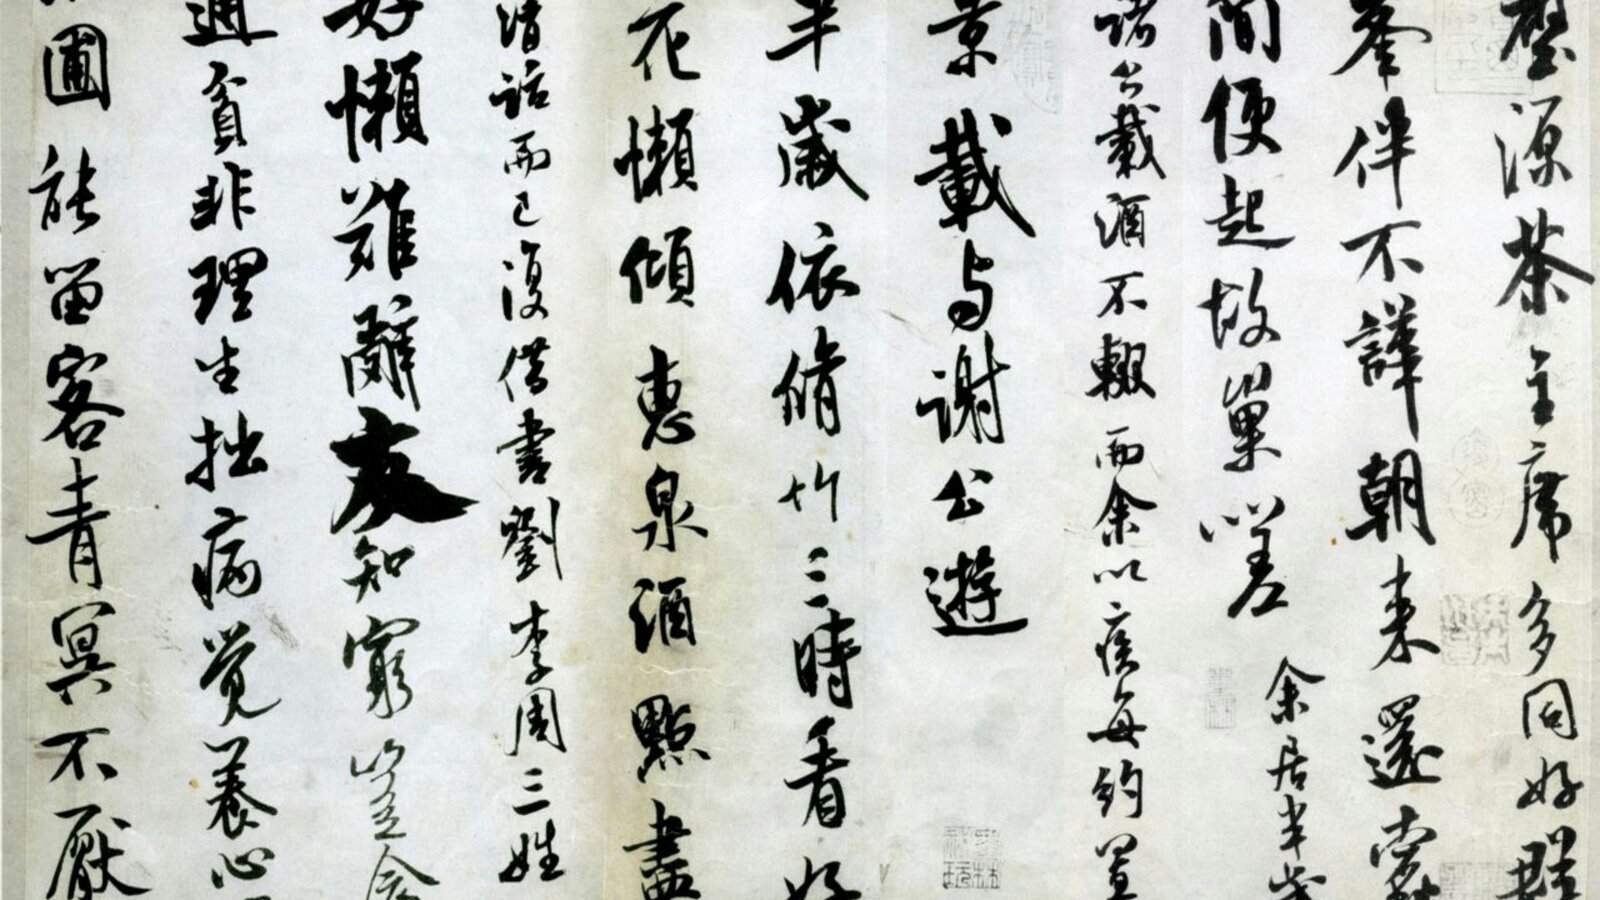 壑源茶主席多同好群
峯伴不譁朝來還蠹
簡便起故巢嗟
余居半歲
諸公載酒不輟而余以疾每約置
景載与謝公遊
半歲依脩竹三時看好
花懶傾惠泉酒點盡
清話而已復借書劉李周三姓
好懶難辭友知窮豈念
通貧非理生拙病覺養心
圃能留客青冥不厭